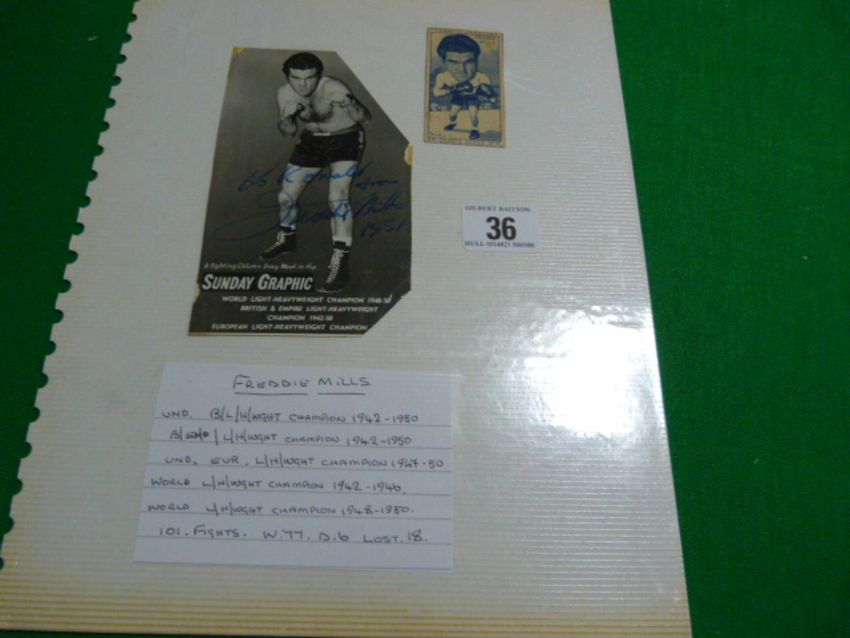 to Ronald
from
Freddie Mills
1951
A Fighting Column Every Week in the
SUNDAY GRAPHIC
WORLD LIGHT-HEAVYWEIGHT CHAMPION 1948-50
BRITISH & EMPIRE LIGHT-HEAVYWEIGHT
CHAMPION 1942-50
EUROPEAN LIGHT-HEAVYWEIGHT CHAMPION
GILBERT BAITSON
36
HULL (01482) 500500
FREDDIE MILLS
UND. B/L/H/WGHT CHAMPION 1942-1950
B/EMP/L/H/WGHT CHAMPION 1942-1950
UND. EUR. L/H/WGHT CHAMPION 1947-50
WORLD L/H/WGHT CHAMPION 1942-1946.
WORLD L/H/WGHT CHAMPION 1948-1950.
101. FIGHTS. W.77. D.6 LOST.18.